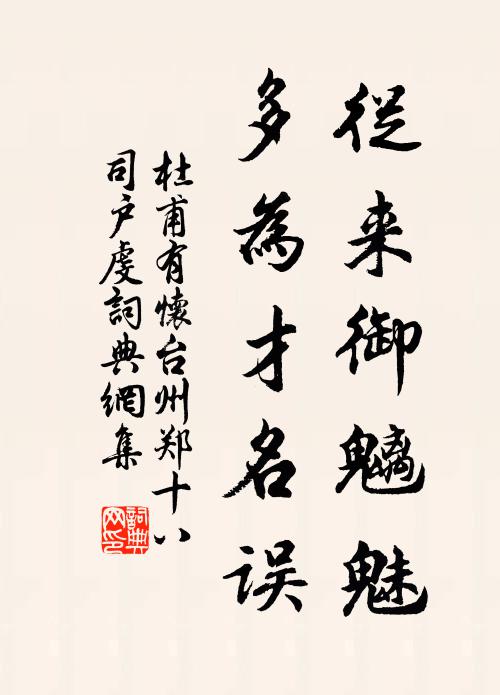 從来御魑魅
多為才名误
杜甫有懷台州郑十八
司户虔詞典網集
詞典网印